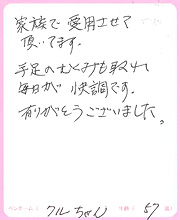 家族で愛用させて
頂いてます。
手足のむくみも取れ
毎日が快調です。
有りがとうございました。
ペンネーム(クルちゃん
年齢(57歳)